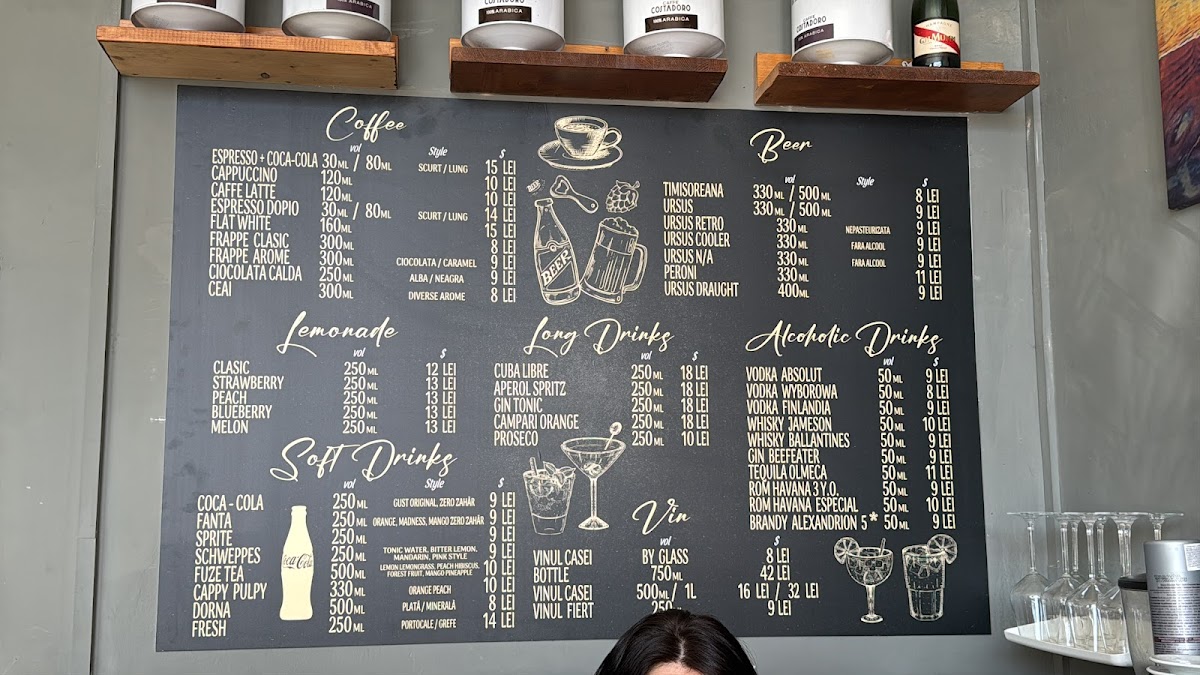 COSTADORO
100% ARABICA
CAFFÈ
COSTADORO
100% ARABICA
COSTADORO
ARABICA
Coffee
vol Style $
ESPRESSO + COCA-COLA 30 ML / 80 ML SCURT / LUNG 15 LEI
CAPPUCCINO 120 ML 10 LEI
CAFFE LATTE 120 ML 10 LEI
ESPRESSO DOPIO 30 ML / 80 ML SCURT / LUNG 14 LEI
FLAT WHITE 160 ML 15 LEI
FRAPPE CLASIC 300 ML 8 LEI
FRAPPE AROME 300 ML CIOCOLATA / CARAMEL 9 LEI
CIOCOLATA CALDA 250 ML ALBA / NEAGRA 9 LEI
CEAI 300 ML DIVERSE AROME 8 LEI
BEER
Beer
vol Style $
TIMISOREANA 330 ML / 500 ML 8 LEI
URSUS 330 ML / 500 ML 9 LEI
URSUS RETRO 330 ML NEPASTEURIZATA 9 LEI
URSUS COOLER 330 ML FARA ALCOOL 9 LEI
URSUS N/A 330 ML FARA ALCOOL 9 LEI
PERONI 330 ML 11 LEI
URSUS DRAUGHT 400 ML 9 LEI
Lemonade
vol $
CLASIC 250 ML 12 LEI
STRAWBERRY 250 ML 13 LEI
PEACH 250 ML 13 LEI
BLUEBERRY 250 ML 13 LEI
MELON 250 ML 13 LEI
Long Drinks
vol $
CUBA LIBRE 250 ML 18 LEI
APEROL SPRITZ 250 ML 18 LEI
GIN TONIC 250 ML 18 LEI
CAMPARI ORANGE 250 ML 18 LEI
PROSECO 250 ML 10 LEI
Alcoholic Drinks
vol $
VODKA ABSOLUT 50 ML 9 LEI
VODKA WYBOROWA 50 ML 8 LEI
VODKA FINLANDIA 50 ML 9 LEI
WHISKY JAMESON 50 ML 10 LEI
WHISKY BALLANTINES 50 ML 9 LEI
GIN BEEFEATER 50 ML 9 LEI
TEQUILA OLMECA 50 ML 11 LEI
ROM HAVANA 3 Y.O. 50 ML 9 LEI
ROM HAVANA ESPECIAL 50 ML 10 LEI
BRANDY ALEXANDRION 5* 50 ML 9 LEI
Soft Drinks
vol Style $
COCA - COLA 250 ML GUST ORIGINAL, ZERO ZAHĂR 9 LEI
FANTA 250 ML ORANGE, MADNESS, MANGO ZERO ZAHĂR 9 LEI
SPRITE 250 ML 9 LEI
SCHWEPPES 250 ML TONIC WATER, BITTER LEMON, 9 LEI
MANDARIN, PINK STYLE
FUZE TEA 500 ML LEMON LEMONGRASS, PEACH HIBISCUS, 10 LEI
FOREST FRUIT, MANGO PINEAPPLE
CAPPY PULPY 330 ML ORANGE PEACH 10 LEI
DORNA 500 ML PLATĂ / MINERALĂ 8 LEI
FRESH 250 ML PORTOCALE / GREFE 14 LEI
Coca-Cola
Vin
vol $
VINUL CASEI BY GLASS 8 LEI
BOTTLE 750 ML 42 LEI
VINUL CASEI 500 ML / 1L 16 LEI / 32 LEI
VINUL FIERT 250 9 LEI